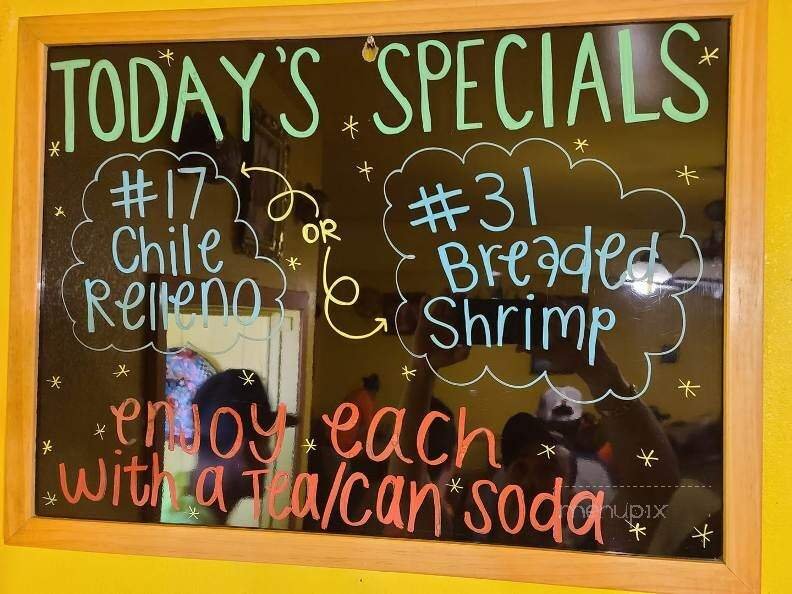 TODAY'S SPECIALS
#17
Chile
Relleno
OR
#31
Breaded
Shrimp
enjoy each
with a Tea/can soda
menupix